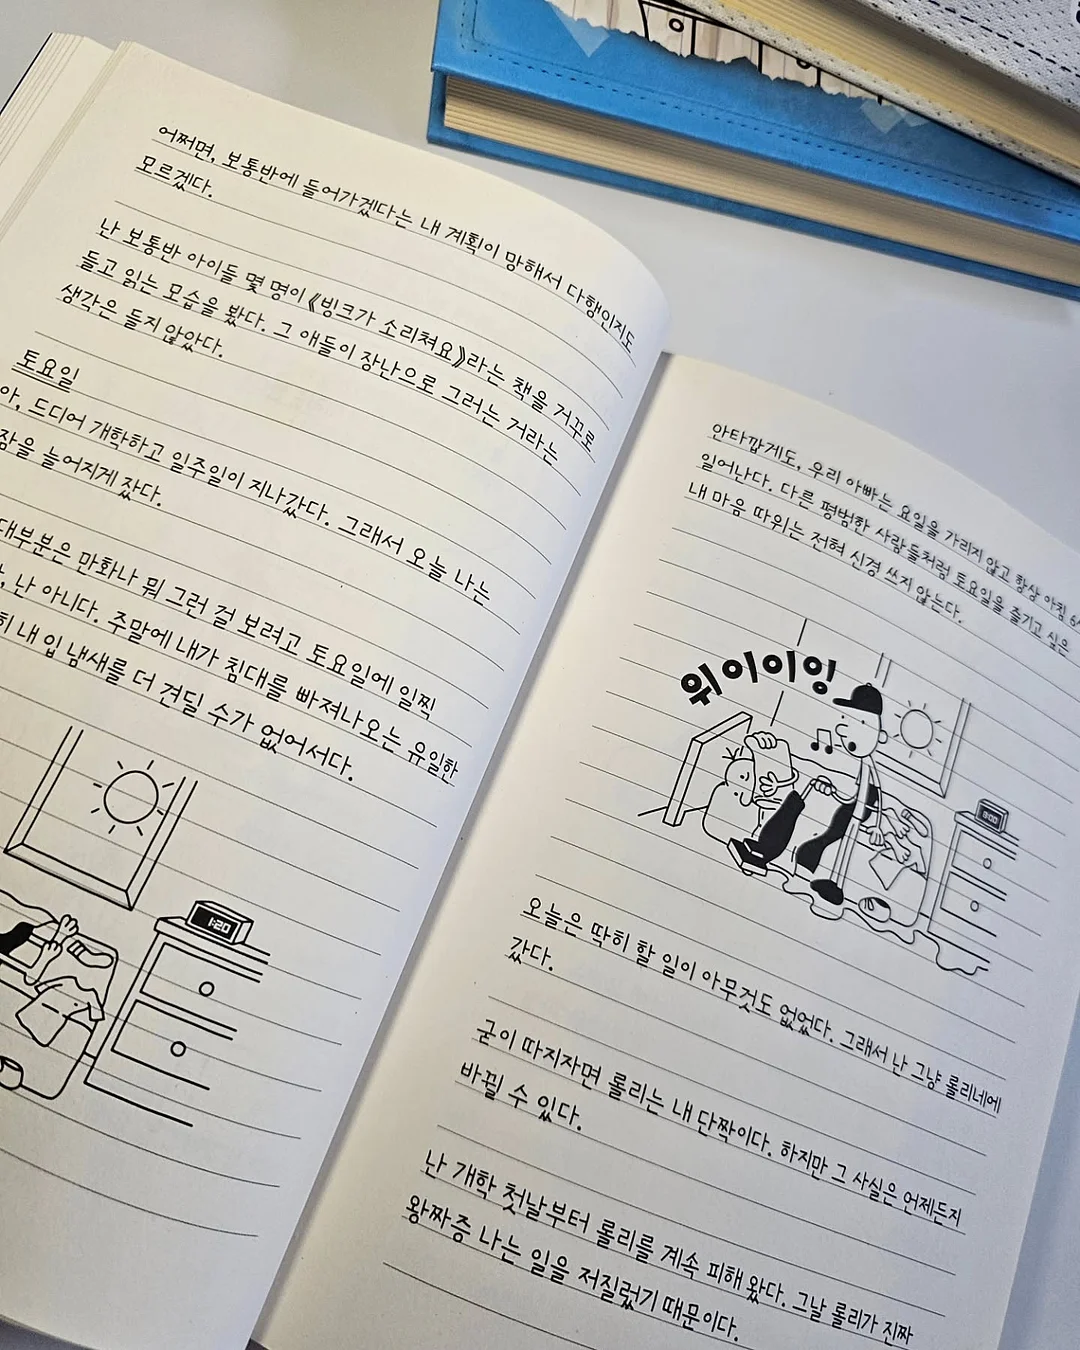 어쩌면, 보통반에 들어가겠다는 내 계획이 망해서 다행인지도
모르겠다.
난 보통반 아이들 몇 명이 《빙크가 소리쳐요》라는 책을 거꾸로
들고 읽는 모습을 봤다. 그 애들이 장난으로 그러는 거라는
생각은 들지 않았다.
토요일
아, 드디어 개학하고 일주일이 지나갔다. 그래서 오늘 나는
잠을 늘어지게 잤다.
대부분은 만화나 뭐 그런 걸 보려고 토요일에 일찍
난 아니다. 주말에 내가 침대를 빠져나오는 유일한
내 입 냄새를 더 견딜 수가 없어서다.
1:20
안타깝게도, 우리 아빠는 요일을 가리지 않고 항상 아침 6시
일어난다. 다른 평범한 사람들처럼 토요일을 즐기고 싶은
내 마음 따위는 전혀 신경 쓰지 않는다.
위이이잉
오늘은 딱히 할 일이 아무것도 없었다. 그래서 난 그냥 롤리네에
갔다.
굳이 따지자면 롤리는 내 단짝이다. 하지만 그 사실은 언제든지
바뀔 수 있다.
난 개학 첫날부터 롤리를 계속 피해 왔다. 그날 롤리가 진짜
왕짜증 나는 일을 저질렀기 때문이다.